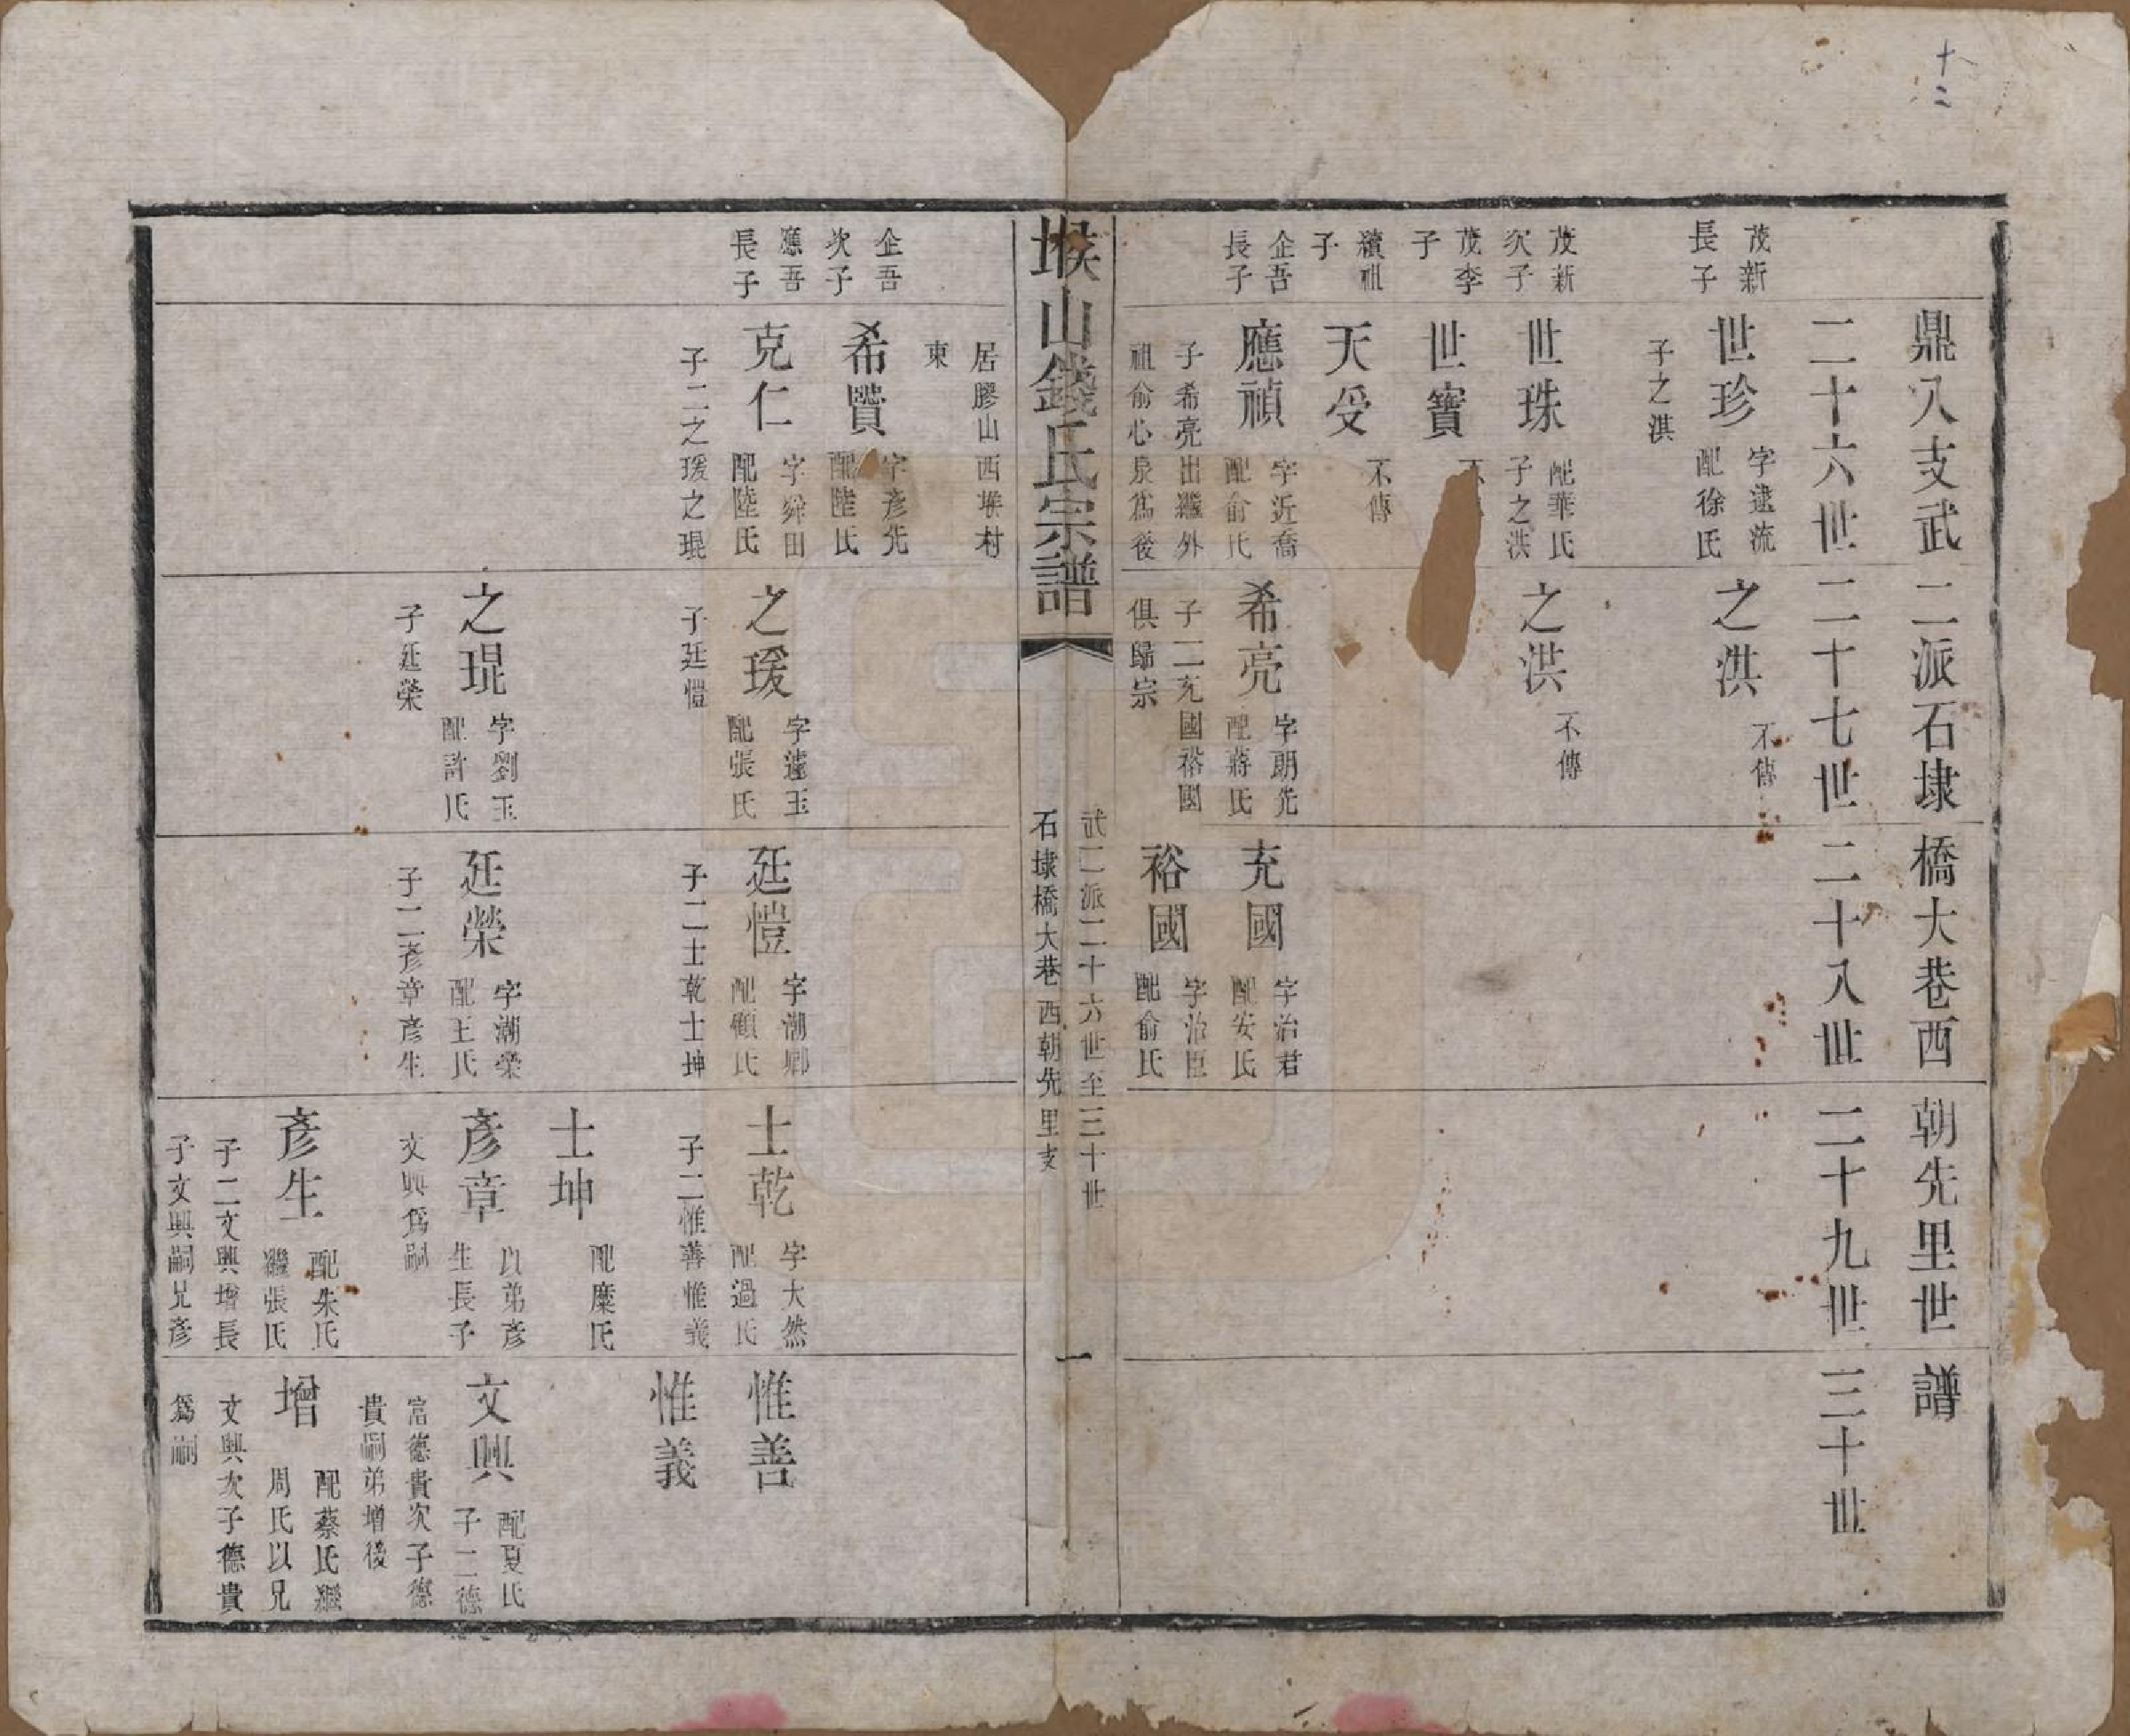 十二
鼎八支武二派石埭橋大巷西朝先里世譜
二十六世
二十七世
二十八世
二十九世
三十世
茂新
長子
世珍
字逮流
配徐氏
子之淇
之淇
不傳
茂新
次子
世珠
配華氏
子之洪
之洪
不傳
茂李
子
世寶
不
纘祖
子
天受
不傳
企吾
長子
應禎
字近喬
配俞氏
子希亮出繼外
祖俞心泉爲後
希亮
字朗先
配蔣氏
子二充國裕國
俱歸宗
充國
字治君
配安氏
裕國
字治臣
配俞氏
堠山錢氏宗譜
武二派二十六世至三十世
石埭橋大巷西朝先里支
一
居膠山西堠村
東
企吾
次子
希賢
字彥先
配陸氏
應吾
長子
克仁
字舜田
配陸氏
子二之瑗之琨
之瑗
字蘧玉
配張氏
子廷愷
廷愷
字潮卿
配顧氏
子二士乾士坤
士乾
字大然
配過氏
子二惟善惟義
惟善
惟義
士坤
配糜氏
之琨
字劉玉
配許氏
子廷榮
廷榮
字潮榮
配王氏
子二彥章彥生
彥章
以弟彥
生長子
文興爲嗣
文興
配夏氏
子二德
富德貴次子德
貴嗣弟增後
彥生
配朱氏
繼張氏
子二文興增長
子文興嗣兄彥
增
配蔡氏繼
周氏以兄
文興次子德貴
爲嗣